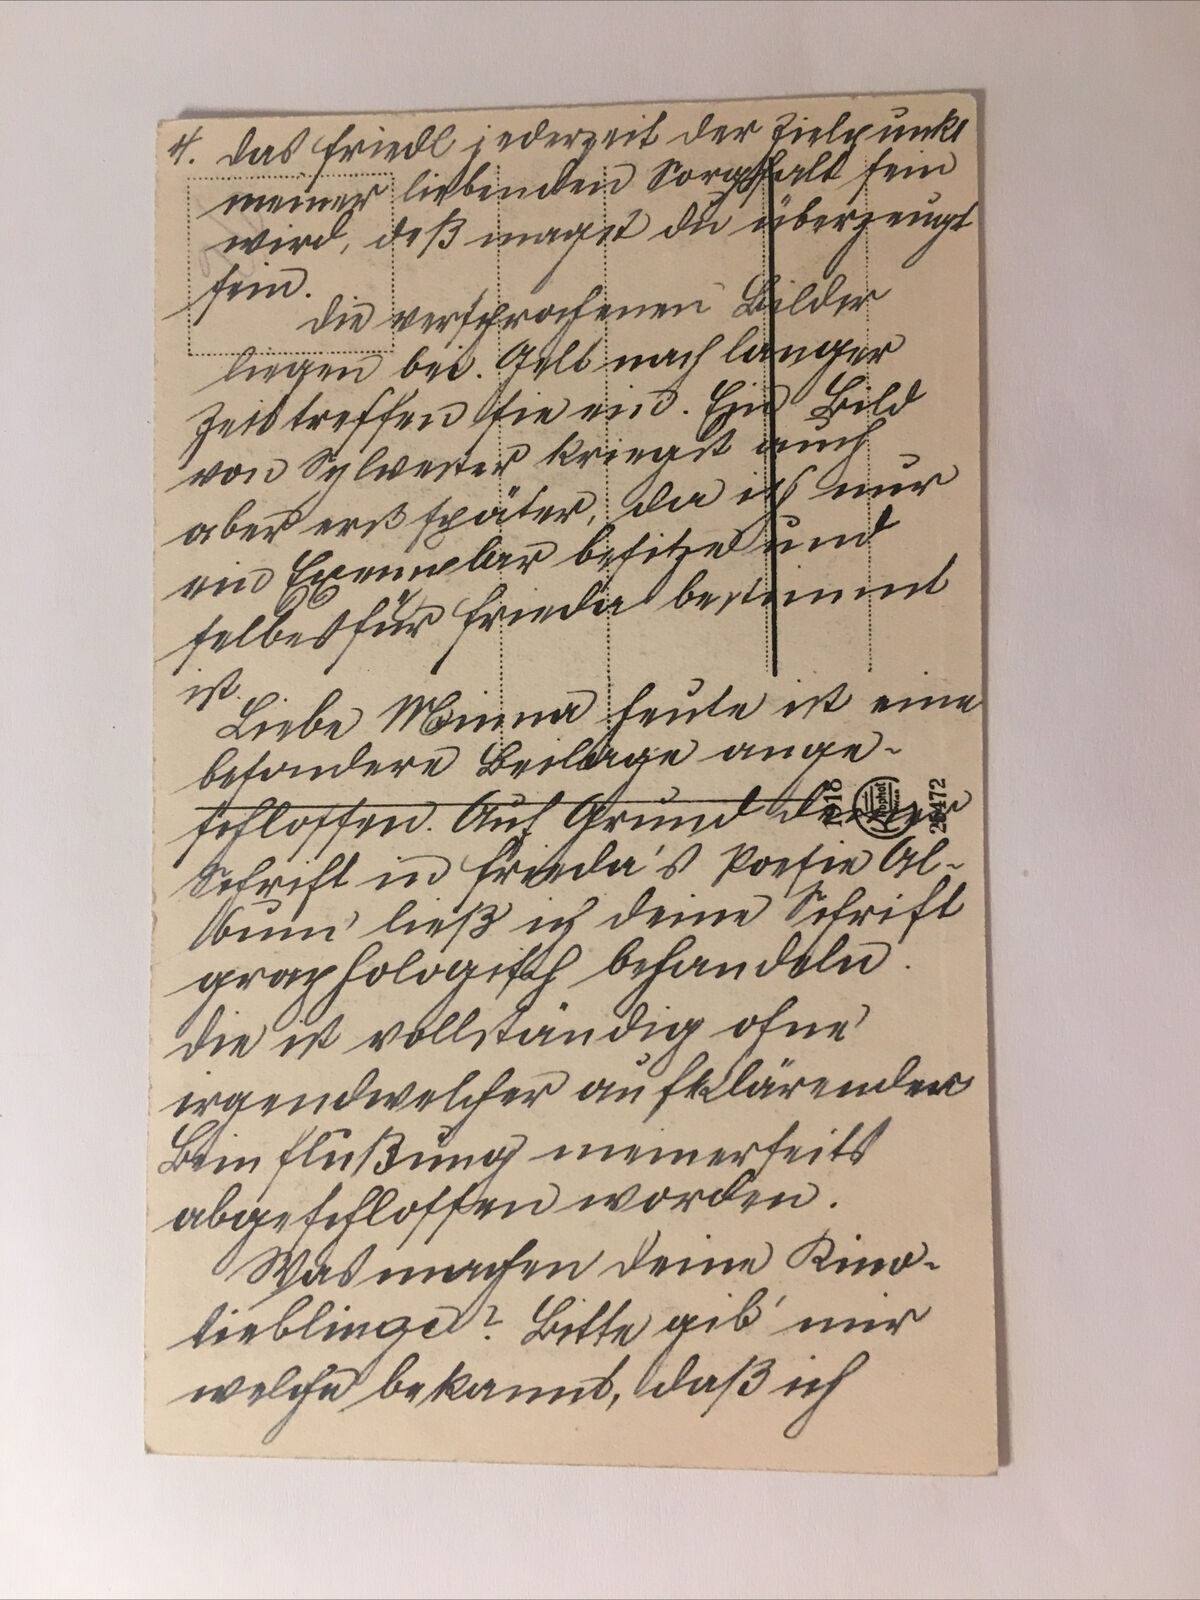 4. das Friedl jederzeit der Zielpunkt
meiner liebenden Sorgfalt sein
wird, deß magst du überzeugt
sein.
die versprochenen Bilder
liegen bei. Gelt nach langer
Zeit treffen sie ein. Ein Bild
von Sylvester kriegst auch
aber erst später, da ich nur
ein Exemplar besitze und
selbes für Frieda bestimmt
ist.
Liebe Minna heute ist eine
besondere Beilage ange-
schlossen. Auf Grund deiner
Schrift in Frieda's Poesie Al-
bum' ließ ich deine Schrift
graphologisch behandeln.
die ist vollständig ohne'
irgendwelcher aufklärenden
Beinflußung meinerseits
abgeschlossen worden.
Was machen deine Kino-
lieblinge? Bitte gib' mir
welche bekannt, daß ich